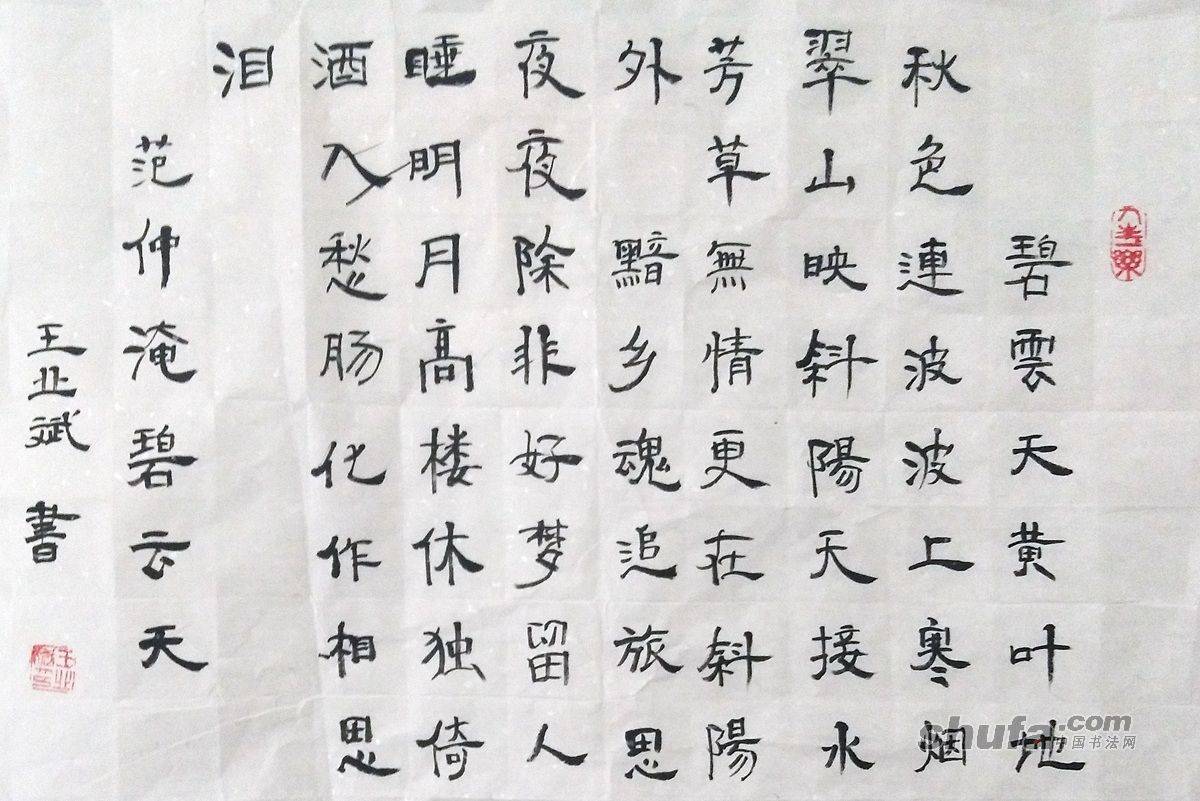 碧雲天黄叶地
秋色連波波上寒烟
翠山映斜陽天接水
芳草無情更在斜陽
外 黯乡魂追旅思
夜夜除非好梦留人
睡明月高楼休独倚
酒入愁肠化作相思
泪
范仲淹碧云天
王业斌 書
shufa.com
中国书法网